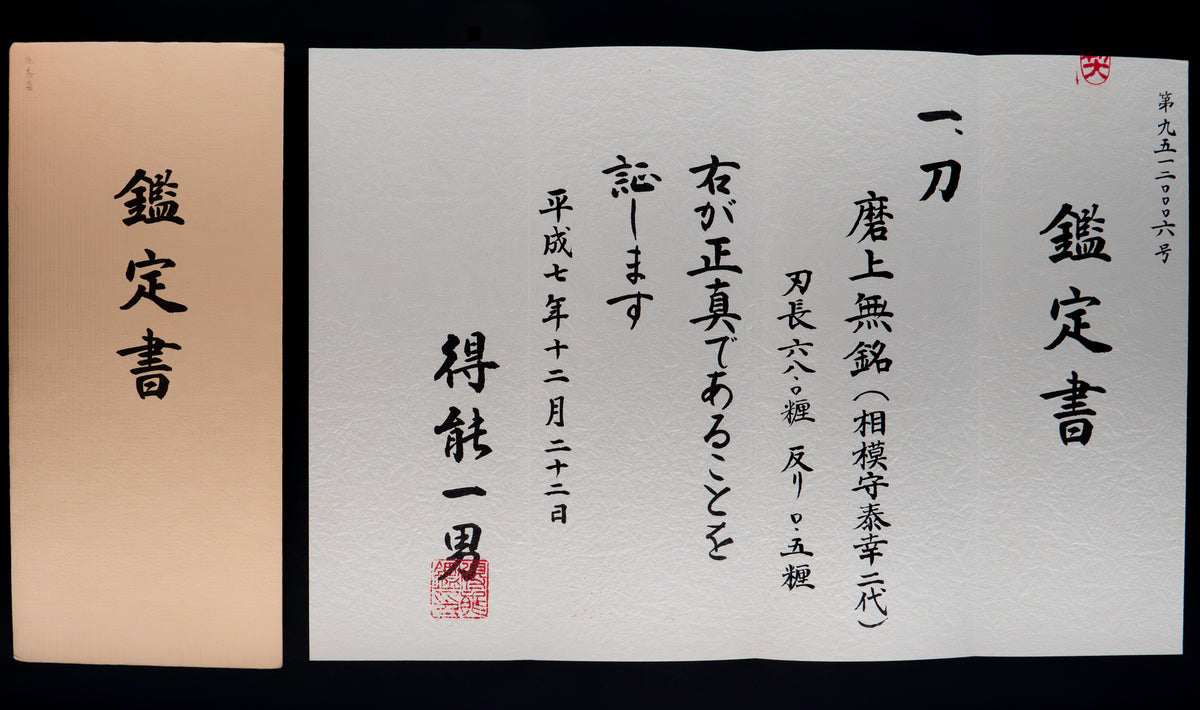 鑑定書
第九五一二〇〇〇六号
鑑定書
一、刀
磨上無銘(相模守泰幸二代)
刃長六八・〇糎 反り〇・五糎
右が正真であることを
証します
平成七年十二月二十二日
得能一男